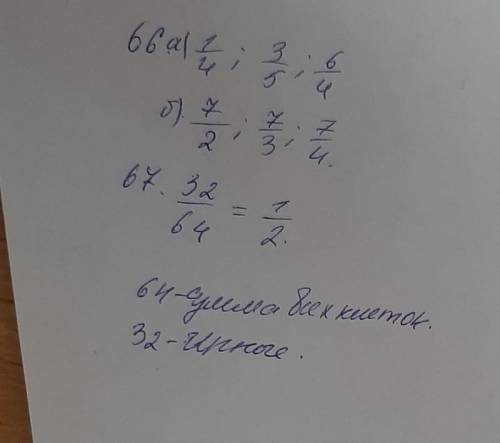 66 а) 1/4 ; 3/5 ; 6/4
б). 7/2 ; 7/3 ; 7/4.
67. 32/64 = 1/2.
64 - сумма всех клеток.
32 - чёрные.